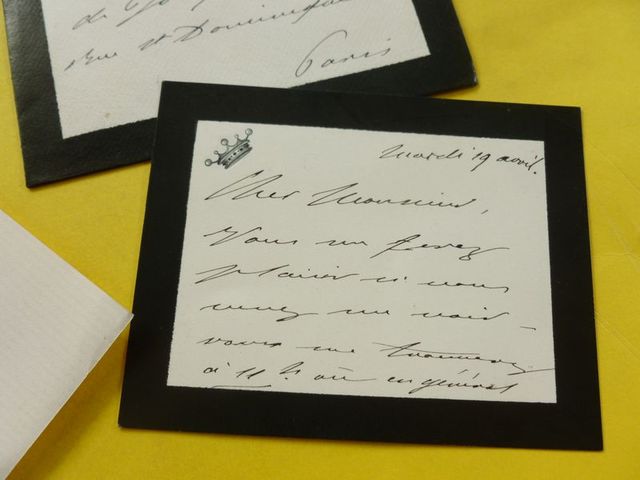 de
rue St Dominique
Paris
mardi 19 avril.
Cher Monsieur,
Vous me ferez
plaisir si vous
venez me voir -
vous me trouverez
à 11 h. où en général